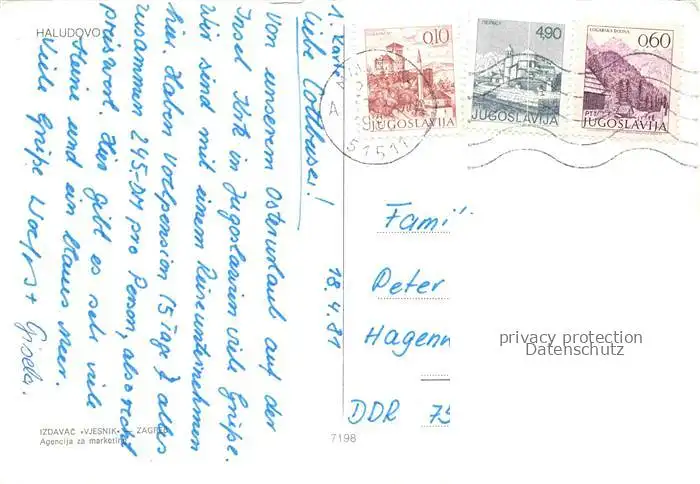 HALUDOVO
1. Karte
Liebe Cottbuser!
Von unserem Osterurlaub auf der
Insel Krk in Jugoslawien viele Grüße.
Wir sind mit einem Reiseunternehmen
hier. Haben Vollpension (5 Tage) alles
zusammen 245-DM pro Person, also recht
preiswert. Hier gibt es sehr viele
Steine und ein blaues Meer.
Viele Grüße Wolfg. + Gisela.
18.4.81
IZDAVAČ «VJESNIK» — ZAGREB
Agencija za marketing
7198
0,10
JUGOSLAVIJA
4,90
JUGOSLAVIJA
LOGARSKA DOLINA
0,60
PTT
JUGOSLAVIJA
A
51511
Famil
Peter
Hagenw
DDR 75
privacy protection
Datenschutz